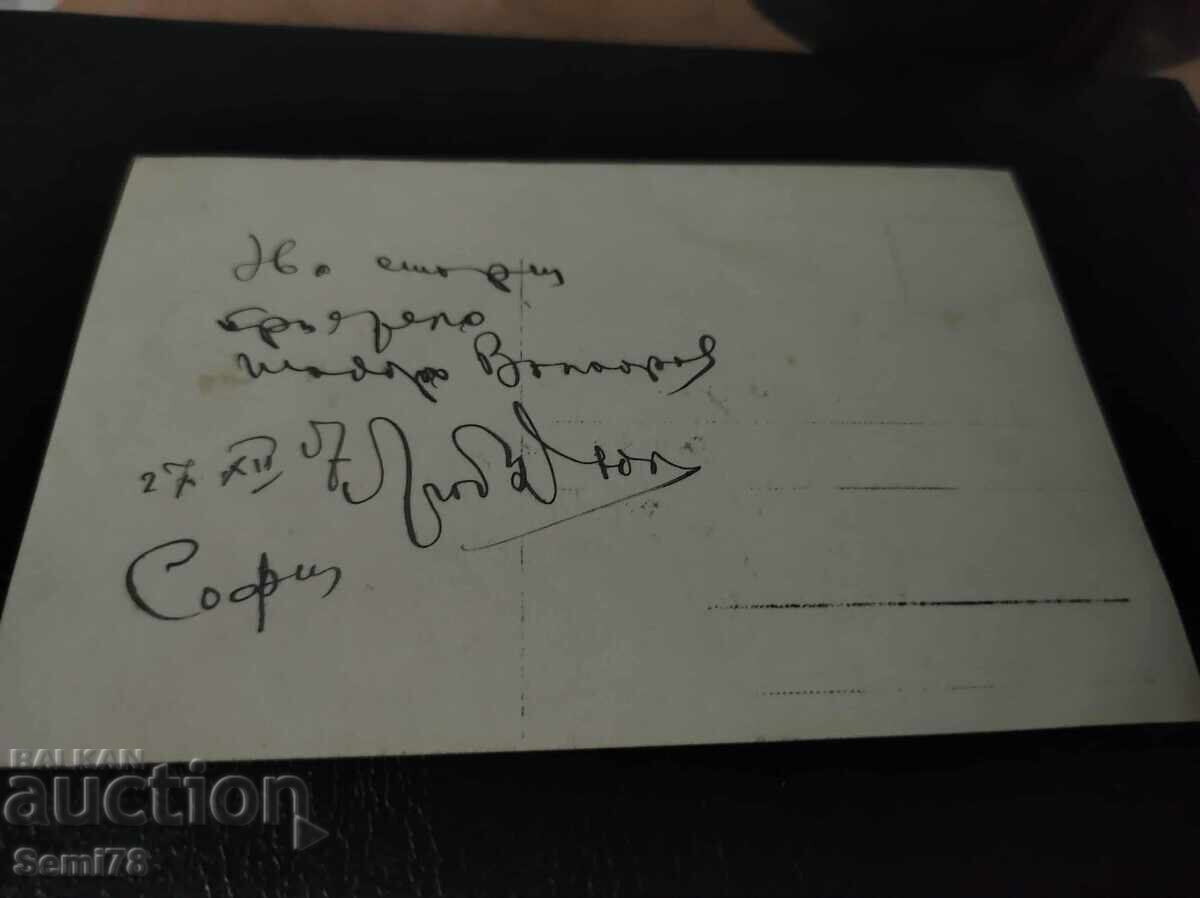 На стария
приятел
Тодор Вапоров
27 XII 57
София
BALKAN
auction
Semi78